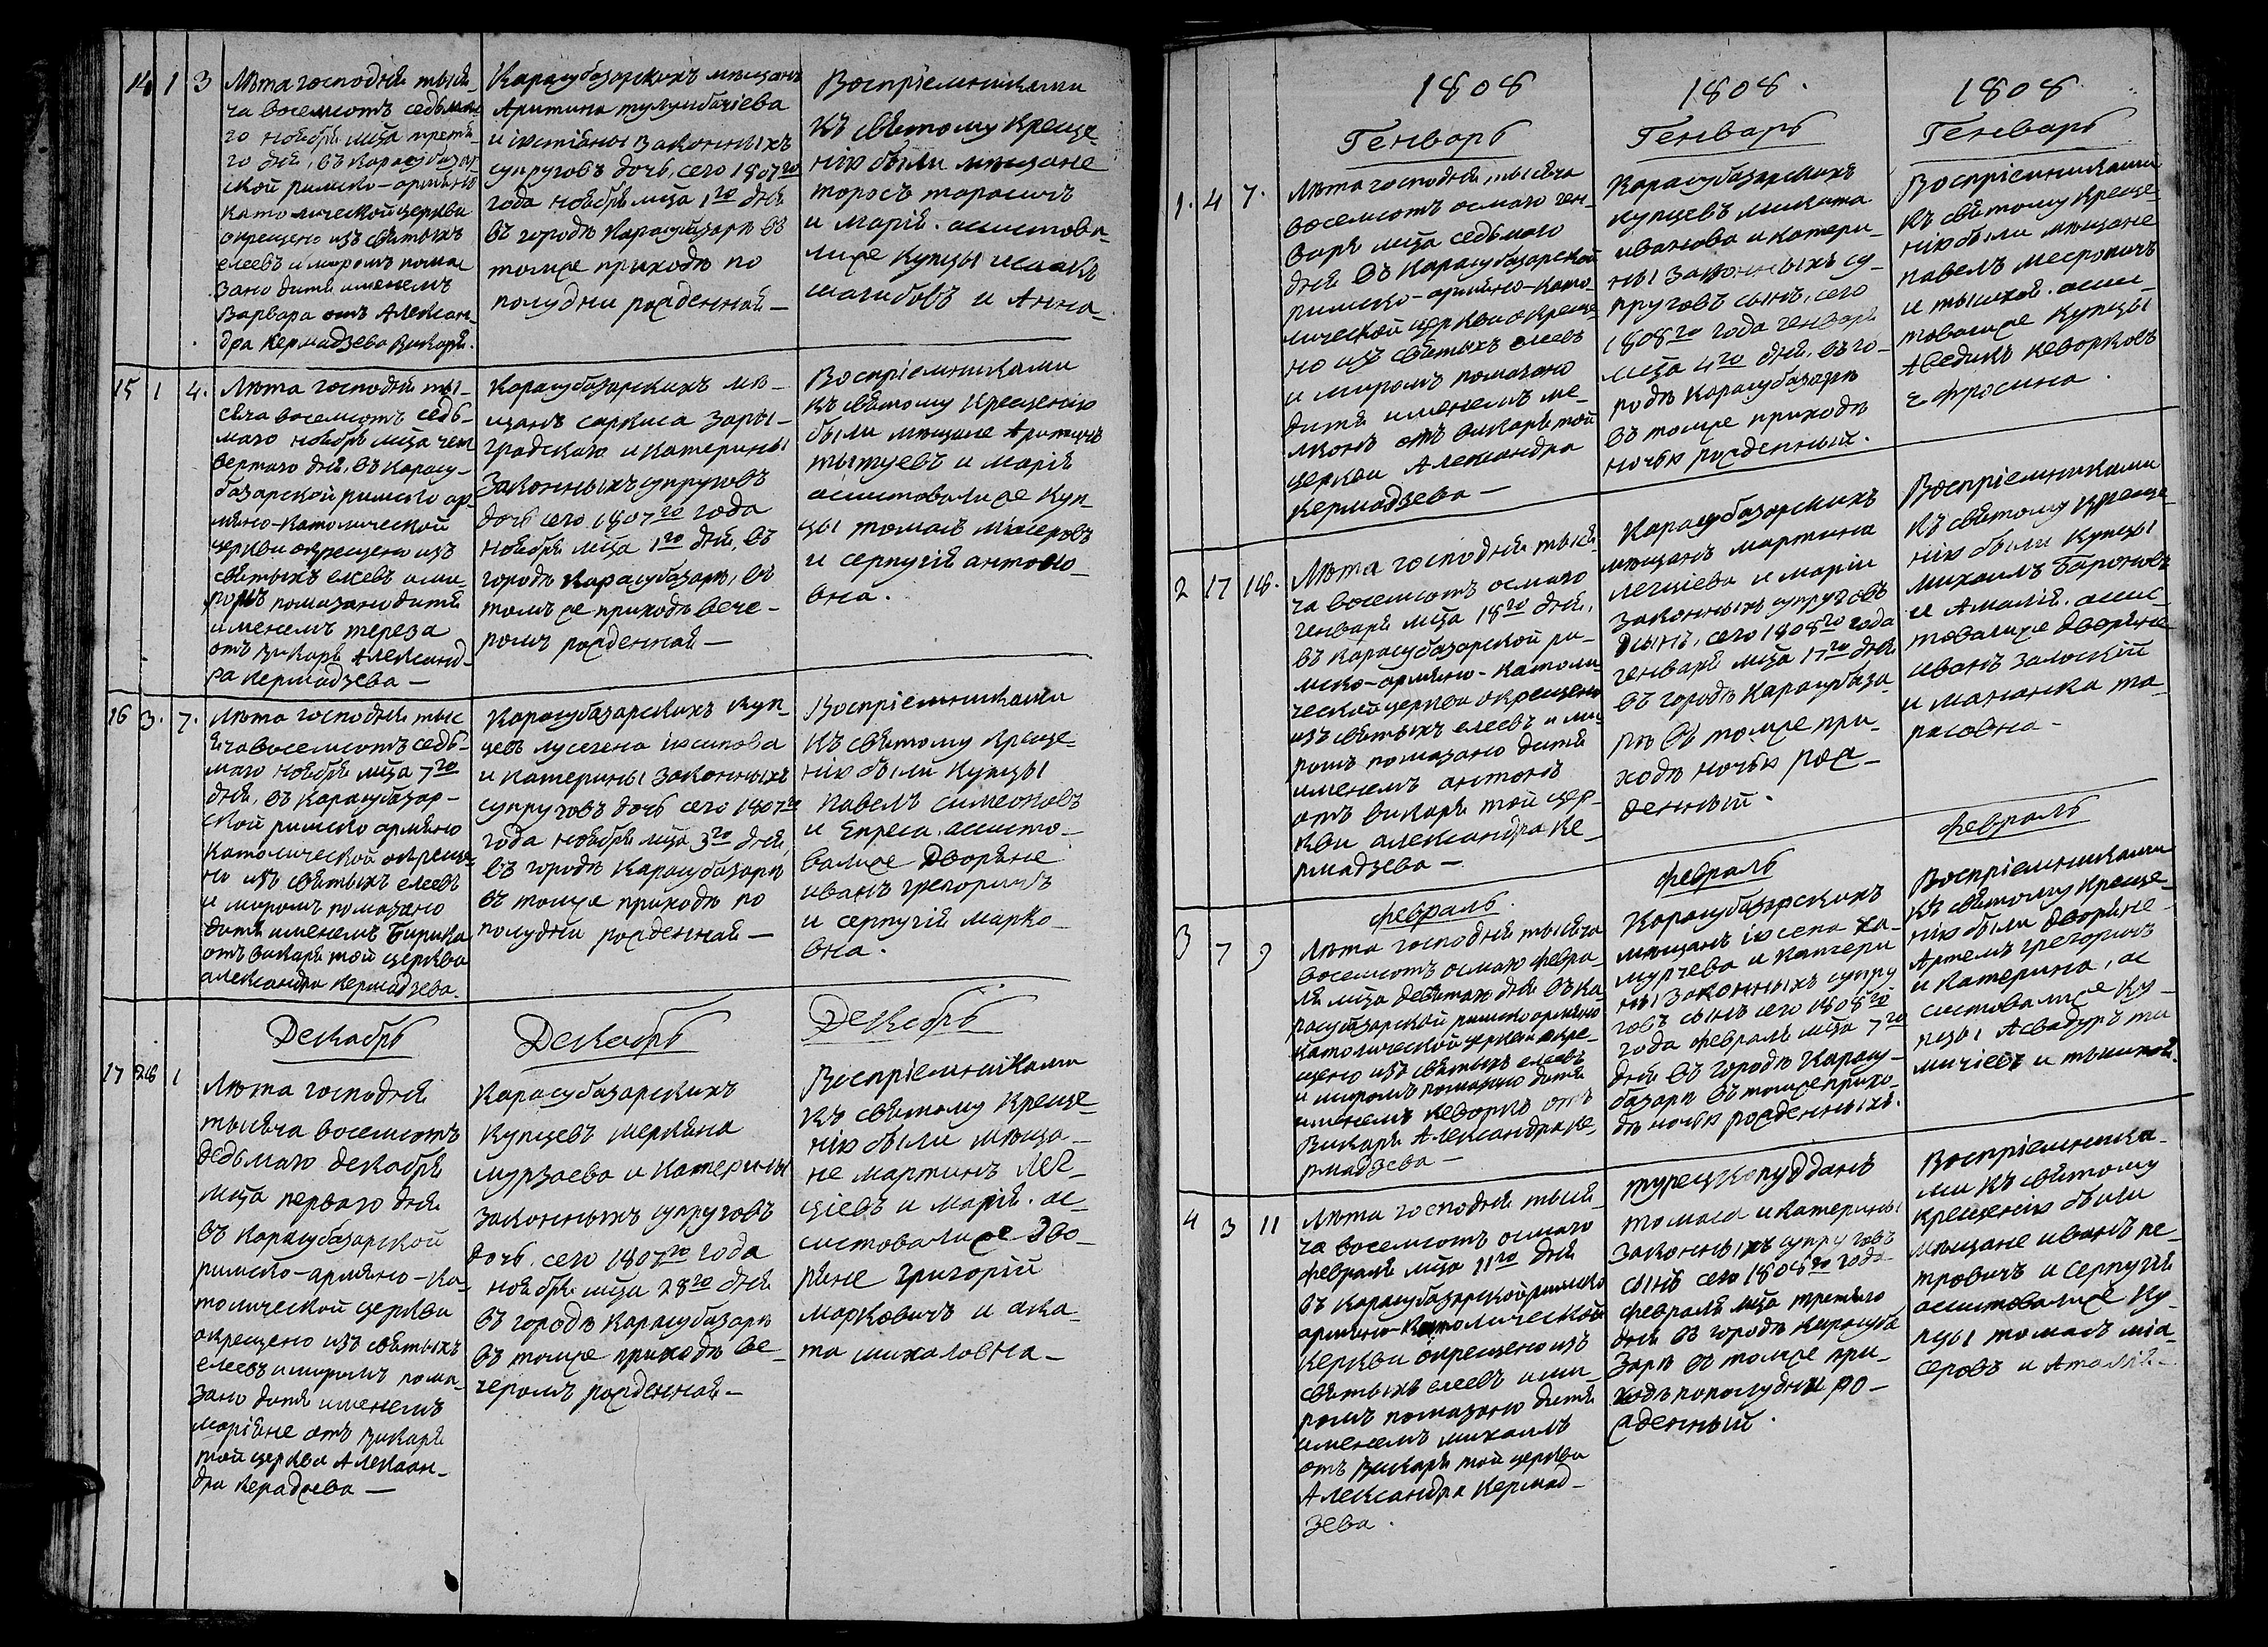 14 1 3
Лѣта господня тыся-
ча восемсотъ седьмаго
го ноября мца третя-
го дня, въ Карасубазар
ской римско-армяно
католической церкви
окрещено изъ святыхъ
елеевъ и мѵромъ пома
зано дитя именемъ
Варвара отъ Алексан-
дра Кермадзева Викарія.
Карасубазарскихъ мѣщанъ
Аритина тулумбачіева
законныхъ
супруговъ дочь, сего 1807го
года ноября мца 1го дня
въ городѣ Карасубазарѣ въ
томже приходѣ по
полудни рожденная —
Воспріемниками
къ святому креще-
нію были мѣщане
торосъ торосичъ
и марія. асистова-
лиже купцы исаакъ
шагибовъ и Анна.
15 1 4.
Лѣта господня ты-
сяча восемсотъ седь-
маго ноября мца чет
вертаго дня, въ карасу-
базарской римско ар-
мяно-католической
церкви окрещено изъ
святыхъ елеевъ и ми-
ромъ помазано дитя
именемъ тереза
отъ викарія Александ-
ра кермадзева —
Карасубазарскихъ мѣ-
щанъ саркиса зары-
градскаго и катерины
законныхъ супруговъ
дочь сего 1807го года
ноября мца 1го дня, въ
городѣ карасубазарѣ, въ
томъ же приходѣ вече-
ромъ рожденная —
Воспріемниками
къ святому крещенію
были мѣщане Аритичъ
тытуевъ и марія
асистовалиже куп-
цы томасъ місеровъ
и серпугія антоно-
вна.
16 3. 7.
Лѣта господня тыс
яча восемсотъ седь-
маго ноября мца 7го
дня, въ карасубазар-
ской римско армяно
католической окреще-
но изъ святыхъ елеевъ
и миромъ помазано
дитя именемъ Бирика
отъ викарія той церкви
александра кермадзева.
Карасубазарскихъ куп-
цевъ лусегена іосипова
и катерины законныхъ
супруговъ дочь сего 1807го
года ноября мца 3го дня,
въ городѣ карасубазарѣ
въ томже приходѣ по
полудни рожденная —
Воспріемниками
къ святому креще-
нію были купцы
павелъ симеоновъ
и Епреса. асисто-
валиже дворяне
иванъ грегоричъ
и серпугія марко-
вна.
Декабрь
17 28 1
Лѣта господня
тысяча восемсотъ
седьмаго декабря
мца перваго дня
въ карасубазарской
римско-армяно-ка-
толической церкви
окрещено изъ святыхъ
елеевъ и миромъ пома-
зано дитя именемъ
маріяне отъ викарія
той церкви Алексан-
дра Керадзева —
Декабрь
Карасубазарскихъ
купцевъ меркяна
мурзаева и катерины
законныхъ супруговъ
дочь. сего 1807го года
ноября мца 28го дня
въ городѣ карасубазарѣ
въ томже приходѣ ве-
черомъ рожденная —
Декабрь
Воспріемниками
къ святому креще-
нію были мѣща-
не мартинъ лег-
ціевъ и марія. ас-
систовалиже дво-
ряне григорій
марковичъ и ага-
та михаловна —
1808
Генварь
1. 4 7.
Лѣта господня, тысяча
восемсотъ осмаго ген-
варя мца седьмаго
дня въ Карасубазарской
римско-армяно-като-
лической церкви окреще
но изъ святыхъ елеевъ
и миромъ помазано
дитя именемъ ме-
лконъ отъ викарія той
церкви Александра
кермадзева —
1808.
Генварь
Карасубазарскихъ
купцевъ миката
иванова и катери-
ны законныхъ су-
пруговъ сынъ, сего
1808го года генваря
мца 4го дня, въ го-
родѣ карасубазарѣ
въ томже приходѣ
ночью рожденный.
1808
Генварь
Воспріемниками
къ святому креще-
нію были мѣщане
павелъ месропичъ
и тышхоя. асис-
товалиже купцы
Аведикъ кеворковъ
ефросина.
2 17 18.
Лѣта господня тыся-
ча восемсотъ осмаго
генваря мца 18го дня,
въ карасубазарской ри-
мско-армяно-католи-
ческой церкви окрещено
изъ святыхъ елеевъ и ми
ромъ помазано дитя
именемъ антонъ
отъ викарія той цер-
кви александра ке-
рмадзева —
Карасубазарскихъ
мѣщанъ мартина
легциева и маріи
законныхъ супруговъ
сынъ, сего 1808го года
генваря мца 17го дня
въ городѣ карасубаза-
рѣ въ томже при-
ходѣ ночью рож-
денный.
Воспріемниками
къ святому креще
нію были купцы
михаилъ бароновъ
и Амалія. асис-
товалиже дворяне
иванъ залоскій
и мананка та-
расовна —
3 7 9
февраль.
Лѣта господня тысяча
восемсотъ осмаго февра-
ля мца девятаго дня въ ка-
расубазарской римско армяно
католической церкви окре-
щено изъ святыхъ елеевъ
и миромъ помазано дитя
именемъ кеворкъ отъ
викарія Александра ке-
рмадзева —
февраль
Карасубазарскихъ
мѣщанъ іосепа ха-
мурчева и катери
ны законныхъ супру
говъ сынъ сего 1808го
года февраля мца 7го
дня въ городѣ карасу-
базарѣ въ томже прихо-
дѣ ночью рожденныхъ.
февраль
Воспріемниками
къ святому креще-
нію были дворяне
Артемъ грегоричъ
и катерина, ас
систовалиже ку-
пцы Асвадуръ ти
мичіевъ и тышхоя.
4 3 11
Лѣта господня тыся-
ча восемсотъ осмаго
февраля мца 11го дня
въ карасубазарской римско
армяно-католической
церкви окрещено изъ
святыхъ елеевъ и ми-
ромъ помазано дитя
именемъ михаилъ
отъ викарія той церкви
Александра кермад-
зева.
томаса и катерины
законныхъ супруговъ
сынъ сего 1808го года
февраля мца третяго
дня въ городѣ карасуба
зарѣ въ томже при-
ходѣ пополудни ро-
жденный.
Воспріемника-
ми къ святому
крещенію были
мѣщане иванъ пе-
тровичъ и серпугія
асистовалиже ку-
пцы томасъ міа-
серовъ и Амалія —